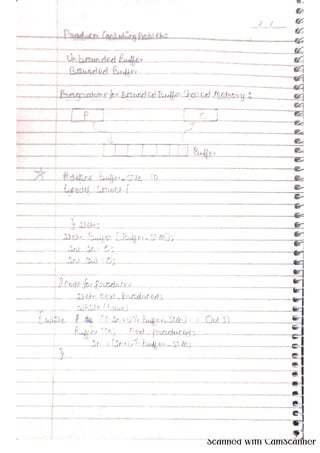 _/_/__
Producer Consuming Problems
Unbounded Buffer
Bounded Buffer
for Bounded Buffer Shared Memory :
P C
Buffer
#define buffer_size 10
typedef struct {
} item;
item buffer [Buffer_size];
int in = 0;
int out = 0;
Code for producer
item next_produced;
while (true)
{ while ( in+1)% buffer_size) = = out ;)
Buffer [in] = next_produced;
in = (in+1)% buffer_size;
}
Scanned with CamScanner